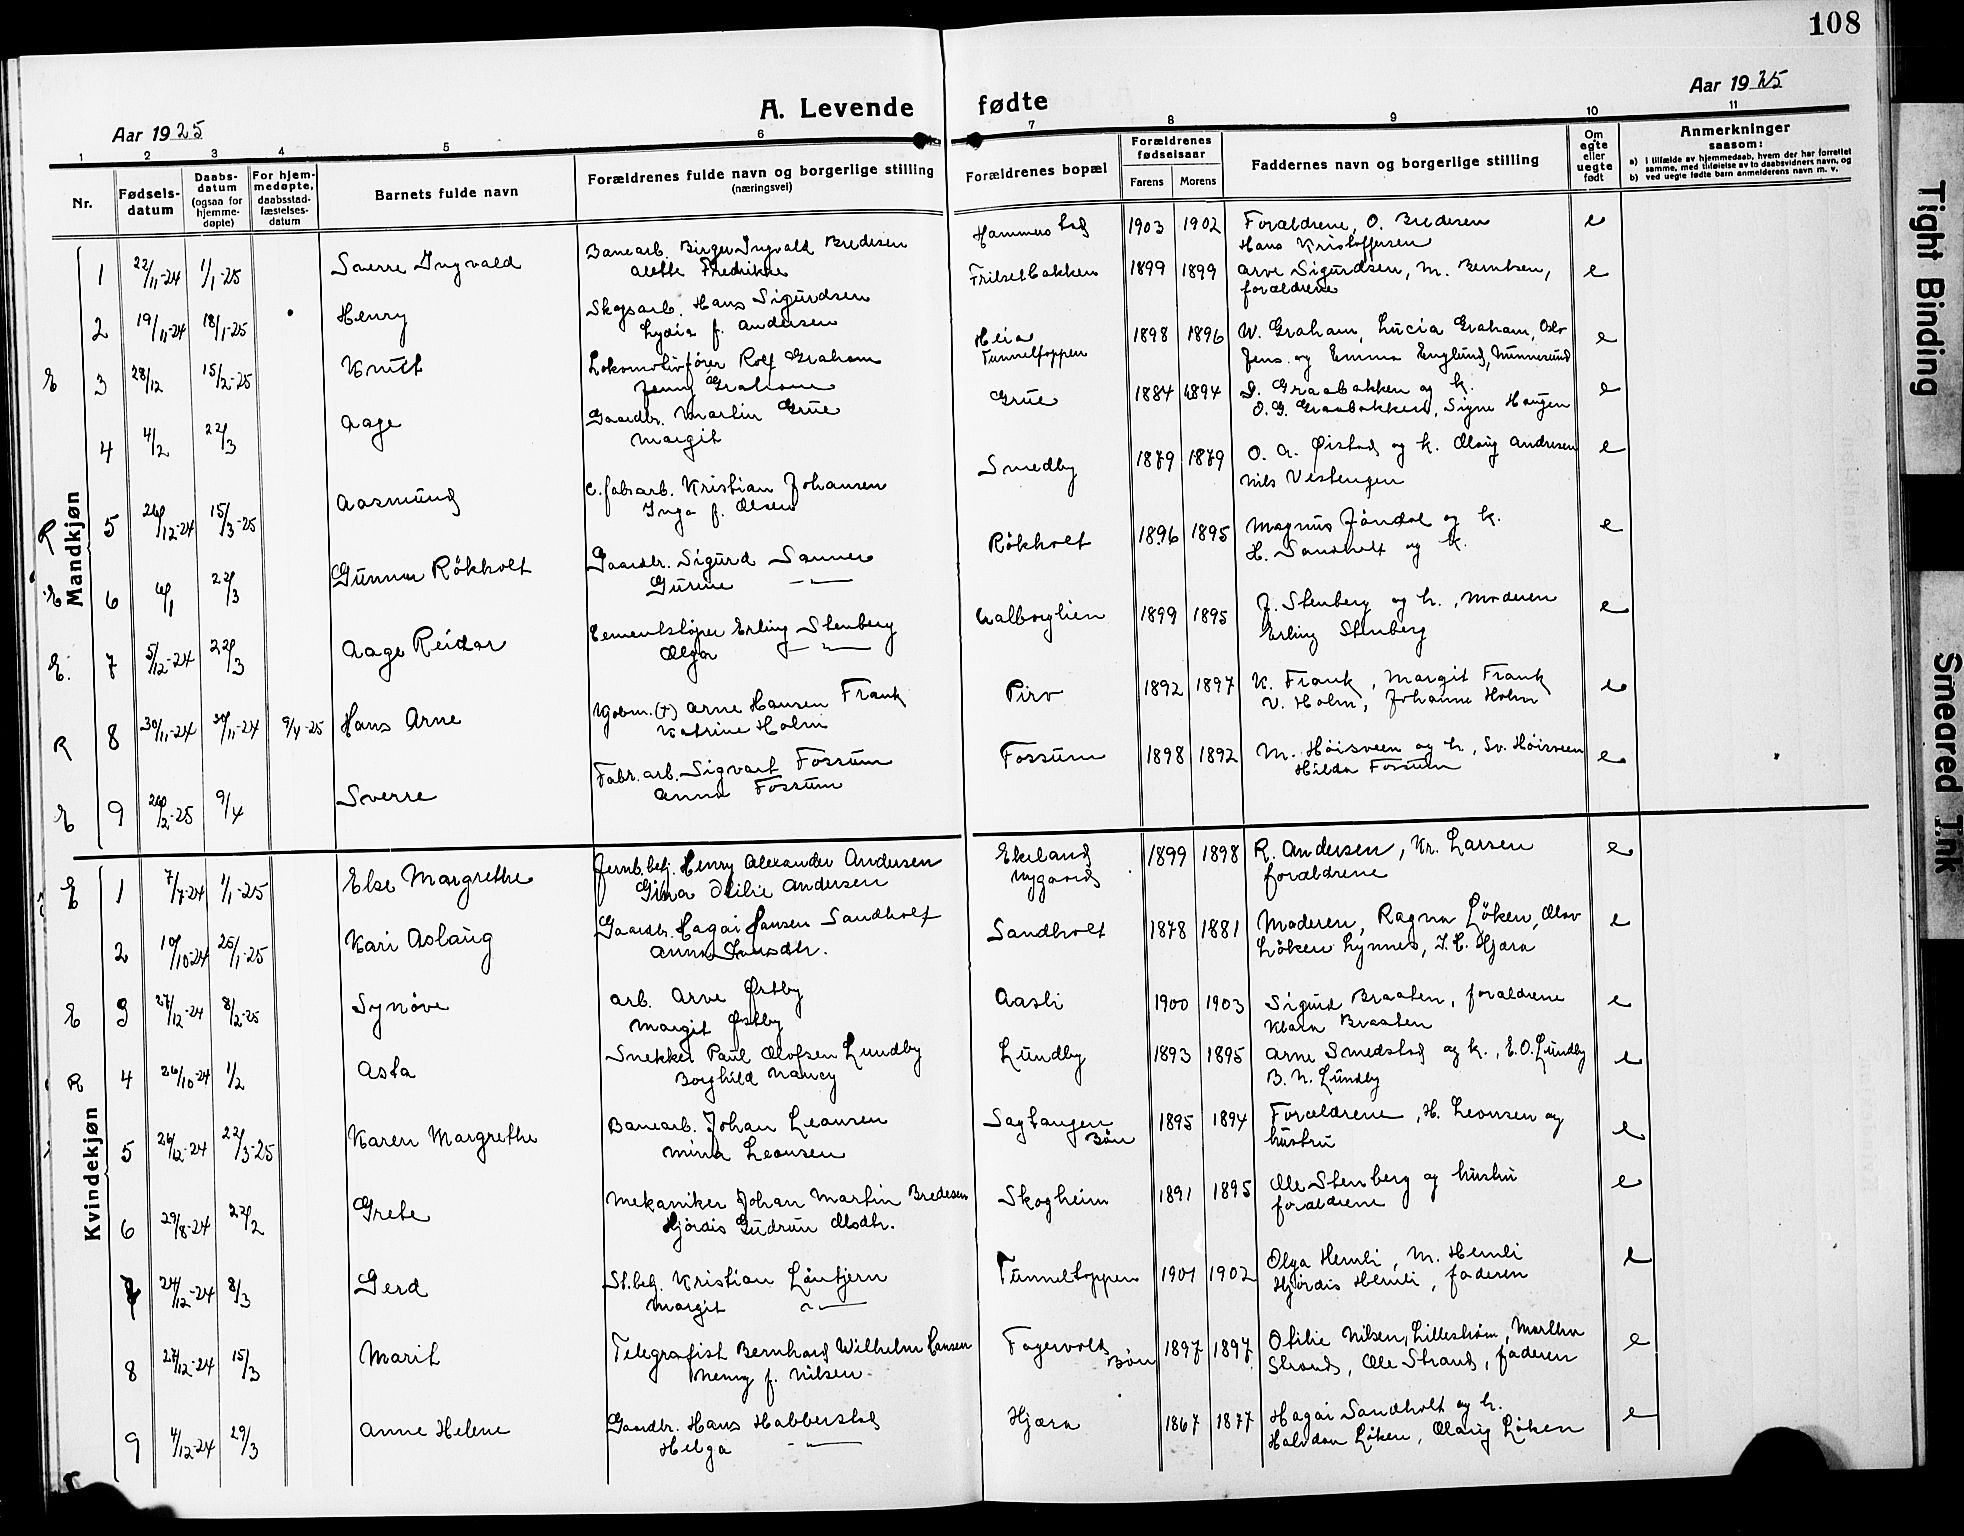 108
Aar 1925
A. Levende fødte
Aar 1925
1 2 3 4 5 6 7 8 9 10 11
Nr.
Fødsels-datum
Daabs-datum (ogsaa for hjemme-døpte)
For hjem-medøpte, daabsstad-fæstelses-datum
Barnets fulde navn
Forældrenes fulde navn og borgerlige stilling
(næringsvei)
Forældrenes bopæl
Forældrenes fødselsaar
Farens Morens
Faddernes navn og borgerlige stilling
Om egte eller uegte født
Anmerkninger
saasom:
a) i tilfælde av hjemmedaab, hvem der har forrettet samme, med tilføielse av to daabsvidners navn, og
b) ved uegte fødte barn anmelderens navn m. v.
Mandkjøn
1 22/11-24 1/1-25 Sverre Ingvald Banearb. Birger Ingvald Bredesen Hammerstad 1903 1902 Forældrene, O. Bredesen e
Alette Fredrikke Hans Kristoffersen
2 19/11-24 18/1-25 Henry Skogsarb. Hans Sigurdsen Frilsetbakken 1899 1899 Arve Sigurdsen, M. Berntsen, e
Lydia f. Andersen forældrene
E 3 28/12 15/2-25 Knutt Lokomotivfører Rolf Graham Heia 1898 1896 W. Graham, Lucia Graham, Oslo e
Jenny Graham Tunneltoppen Jens og Emma Englund,
4 4/2 22/3 Aage Gaardbr. Martin Grue Grue 1884 1894 Graabakken og k. e
Margit O. G. Graabakken, Signe Haugen
R 5 26/12-24 15/3-25 Aasmund C. fabrarb. Kristian Johansen Smedby 1879 1879 O. A. Øistad og k. Olaug Andresen e
Inga f. Olsen Nils Vestengen
E 6 6/1 22/3 Gunnar Røkholt Gaardbr. Sigurd Sanner Røkholt 1896 1895 Magnus Jøndal og k. e
Gurine — " — H. Sandholt og k.
E. 7 5/12-24 22/3 Aage Reidar Cementstøper Erling Stenberg Aalborglien 1899 1895 J. Stenberg og h., Moderen e
Olga — " — Erling Stenberg
R 8 30/11-24 30/11-24 9/4-25 Hans Arne (+) Arne Hansen Frank Piro 1892 1897 K. Frank, Margit Frank e
Katrine Holm V. Holm, Johanne Holm
E 9 20/2-25 9/4 Sverre Fabr. arb. Sigvart Fossum Fossum 1898 1892 M. Høisveen og h., Sv. Høisveen e
Anna Fossum Hilda Fossum
Kvindekjøn
E 1 7/7-24 1/1-25 Else Margrethe Jernb. betj. Henry Alexander Andersen Ekeland 1899 1898 R. Andersen, Kr. Larsen e
Gina Otilie Andersen Nygaard forældrene
2 10/10-24 25/1-25 Kari Aslaug Gaardbr. Hagai Hansen Sandholt Sandholt 1878 1881 Moderen, Ragna Løken, Olav e
Anna Larsdtr. Løken Lynnes, I. C. Hjæra
E 3 27/12-24 8/2-25 Synøve Arb. Arve Østby Aasli 1900 1903 Sigurd Braaten, forældrene e
Margit Østby Klara Braaten
R 4 26/10-24 1/2 Asta Snekker Paul Olofsen Lundby Lundby 1893 1895 Arne Smedstad og k., E. O. Lundby e
Borghild Nancy B. N. Lundby
5 26/12-24 22/3-25 Karen Margrethe Banearb. Johan Leonsen Sagtangen 1895 1894 Forældrene, H. Leonsen og e
Mina Leonsen Bøn hustru
6 29/8-24 22/2 Grete Mekaniker Johan Martin Bredesen Skogheim 1891 1895 Ole Stenberg og hustru e
Hjørdis Gudrun Olsdtr. forældrene
7 24/12-24 8/3 Gerd St.betj. Kristian Løntjern Tunneltoppen 1901 1902 Olga Hemli, M. Hemli e
Margit — " — Hjørdis Hemli, faderen
8 27/12-24 15/3 Marit Telegrafist Bernhard Wilhelm Hansen Fagervold 1897 1897 Otilie Nilsen, Lillestrøm, Martha e
Henny f. Nilsen Bøn Strand, Ole Strand, faderen
9 4/12-24 29/3 Anne Helene Gaardbr. Hans Habberstad Hjæra 1867 1877 Hagai Sandholt og h. e
Helga — " — Halvdan Løken, Olaug Løken
Tight Binding
Smeared Ink